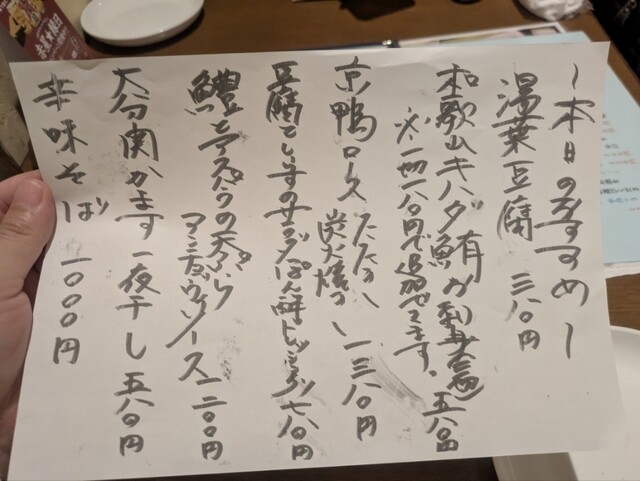 ～本日のおすすめ～
湯葉豆腐 三八〇円
和歌山キハダ鮪が刺身
※一切一八〇円で追加できます。
京鴨ロース たたき 炭火焼き 一三八〇円
豆腐としらすのサラダぽん酢ドレッシング 七八〇円
鱧とアスパラの天ぷら
アンチョビソース 一二〇〇円
大分関かます一夜干し 五八〇円
辛味そば 一〇〇〇円